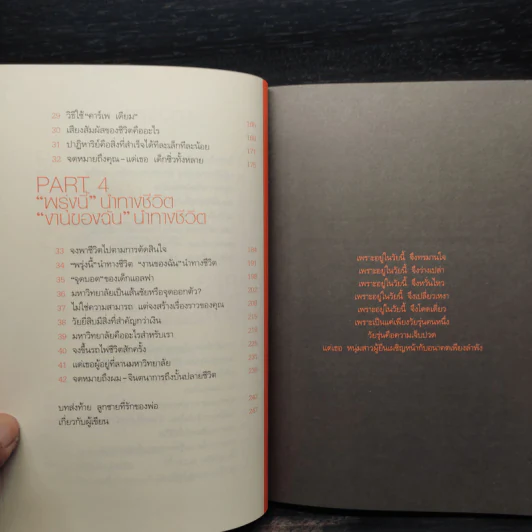 29 วิธีใช้ "คาร์เพ เดียม"
30 เสียงสัมผัสของชีวิตคืออะไร
31 ปาฏิหาริย์คือสิ่งที่สำเร็จได้ทีละเล็กทีละน้อย 171
32 จดหมายถึงคุณ - แด่เธอ เด็กซิ่วทั้งหลาย 175
PART 4
"พรุ่งนี้" นำทางชีวิต
"งานของฉัน" นำทางชีวิต
33 จงพาชีวิตไปตามการตัดสินใจ
34 "พรุ่งนี้" นำทางชีวิต "งานของฉัน" นำทางชีวิต
35 "จุดบอด" ของเด็กแอลฟา
36 มหาวิทยาลัยเป็นเส้นชัยหรือจุดออกตัว?
37 ไม่ใช่ความสามารถ แต่จงสร้างเรื่องราวของคุณ
38 วัยยี่สิบมีสิ่งที่สำคัญกว่าเงิน
39 มหาวิทยาลัยคืออะไรสำหรับเรา
40 จงขึ้นรถไฟชีวิตสักครั้ง
41 แด่เธอผู้อยู่ที่ลานมหาวิทยาลัย
42 จดหมายถึงผม - จินตนาการถึงบั้นปลายชีวิต
บทส่งท้าย ลูกชายที่รักของพ่อ
เกี่ยวกับผู้เขียน
เพราะอยู่ในวัยนี้ จึงทรมานใจ
เพราะอยู่ในวัยนี้ จึงว่างเปล่า
เพราะอยู่ในวัยนี้ จึงหวั่นไหว
เพราะอยู่ในวัยนี้ จึงเปลี่ยวเหงา
เพราะอยู่ในวัยนี้ จึงโดดเดี่ยว
เพราะเป็นแค่เพียงวัยรุ่นคนหนึ่ง
วัยรุ่นคือความเจ็บปวด
แด่เธอ หนุ่มสาวผู้ยืนเผชิญหน้ากับอนาคตเพียงลำพัง